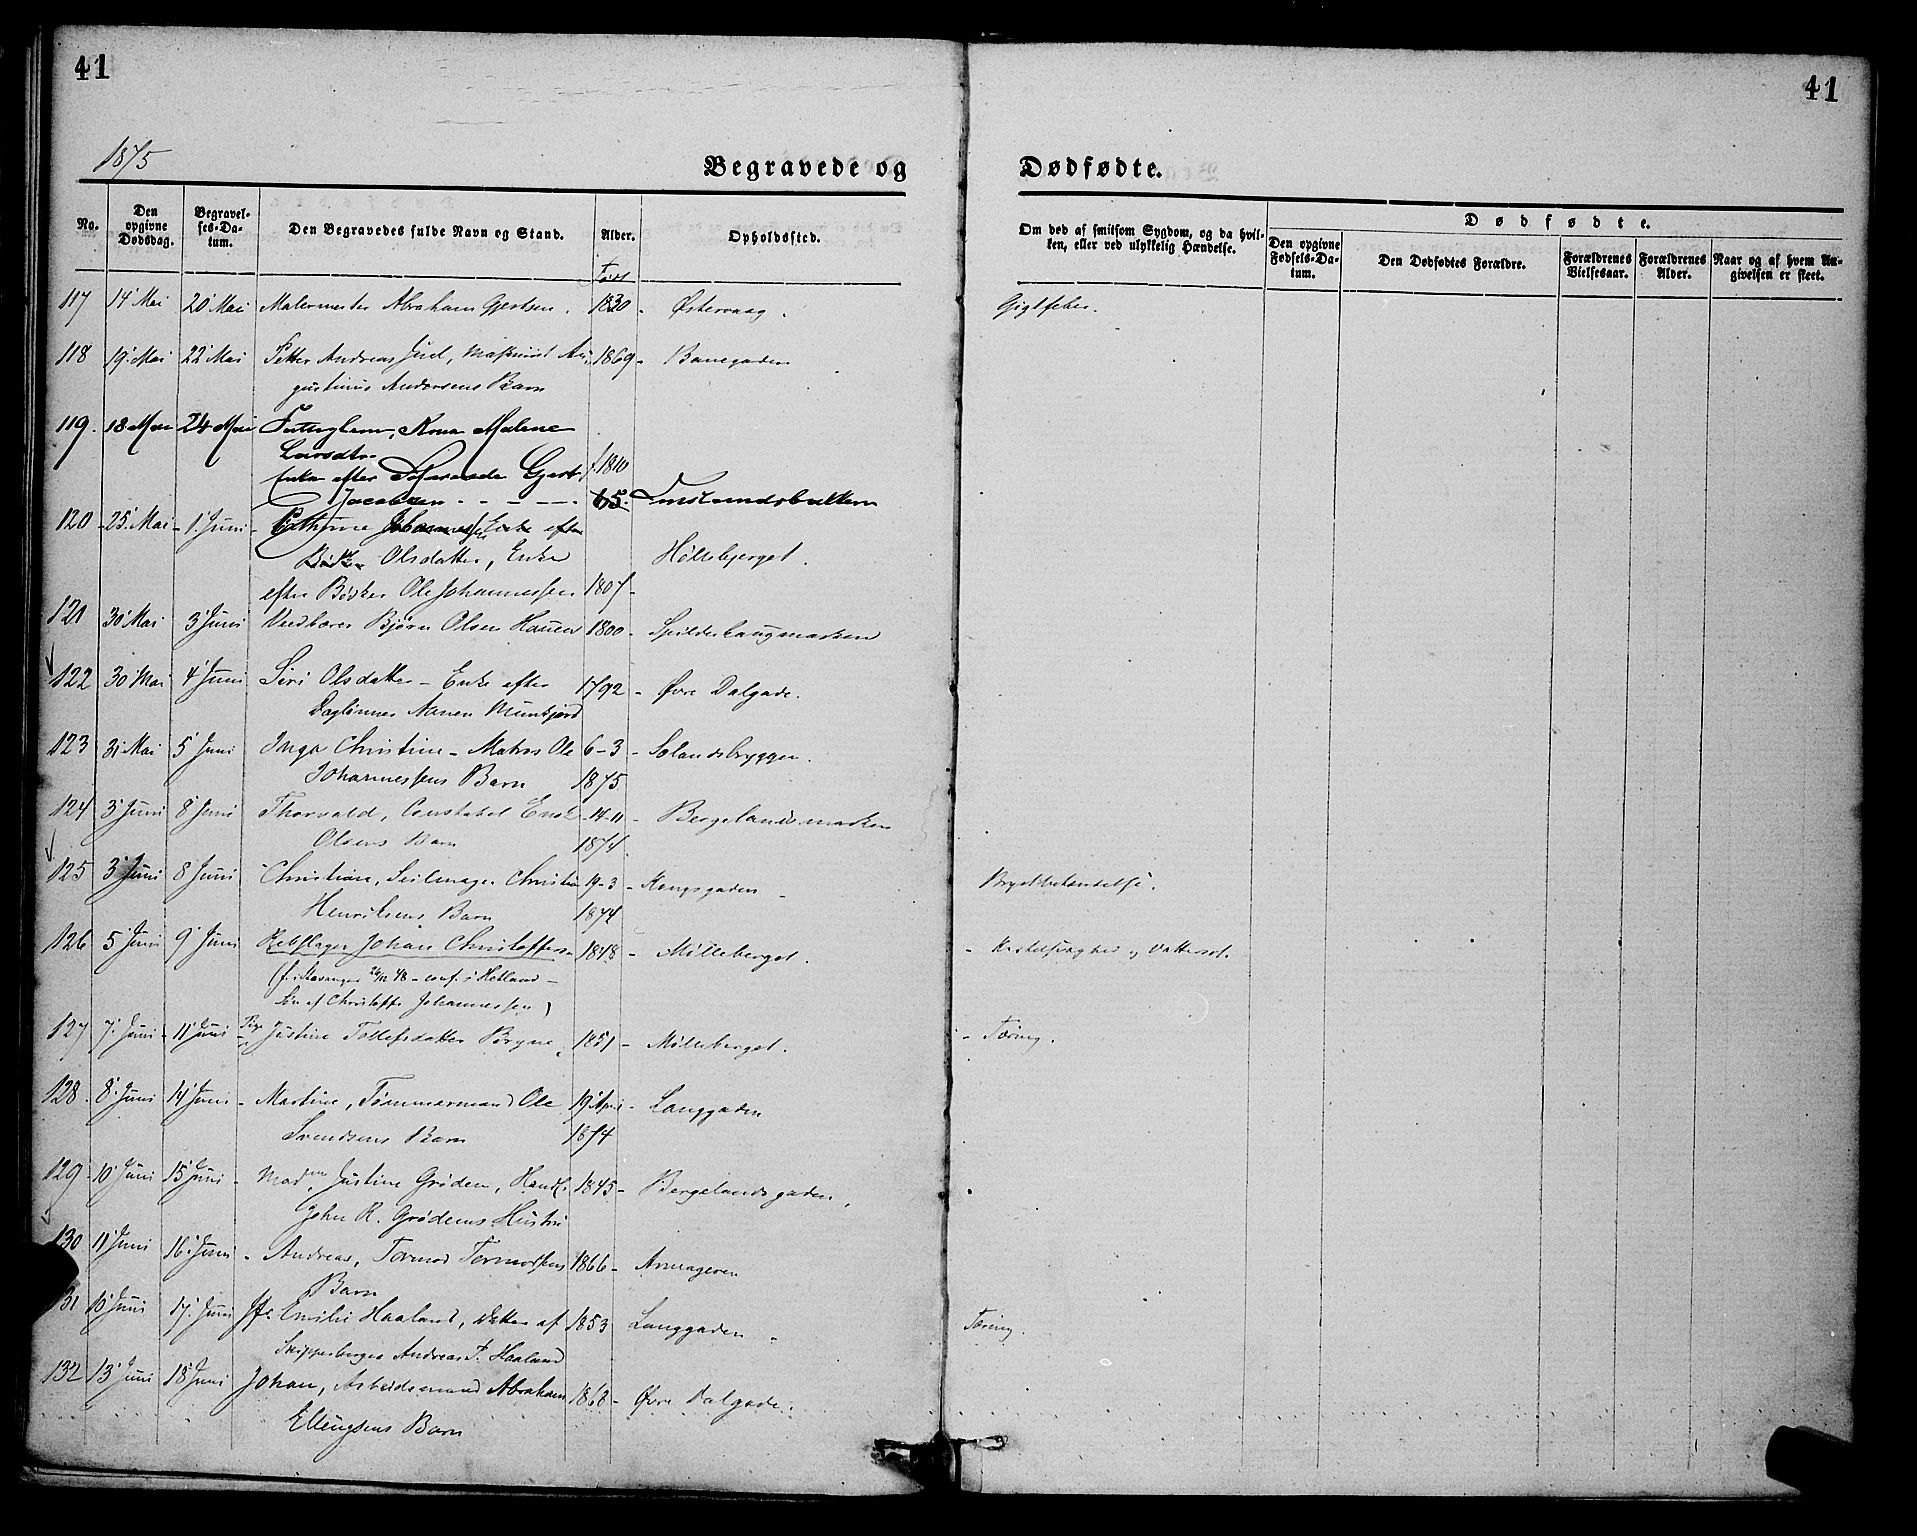 41
41
1875
Begravede og
Dødfødte.
No.
Den opgivne Dødsdag.
Begravelses-Datum.
Den Begravedes fulde Navn og Stand.
Alder.
Opholdssted.
Om død af smitsom Sygdom, og da hvilken, eller ved ulykkelig Hændelse.
Dødfødte.
Den opgivne Fødsels-Datum.
Den Dødfødtes Forældre.
Forældrenes Vielsesaar.
Forældrenes Alder.
Naar og af hvem Angivelsen er skeet.
Født
117 14' Mai 20' Mai Malermester Abraham Gjertsen. 1830 - Østervaag. Gigtfeber.
118 19' Mai 22' Mai Petter Andreas Juel, Maskinist Au- 1869 - Banegaden
gustinus Andersens Barn
119. 18 Mai 24 Mai Kona Malene
Larsdtr.
Enke efter Gjert f. 1810
Jacobsen 65.
120 - 25' Mai - 1' Juni - Enke efter
Olsdatter, Enke Møllebjerget.
efter Bødker Ole Johannessen 1807 -
121 30' Mai 3' Juni Vedbærer Bjørn Olsen Hauen 1800 - Spilderhaugmarken
122 30' Mai 4' Juni Siri Olsdatter - Enke efter 1792 - Øvre Dalgade.
Daglønner Aanen Munkjord
123 31' Mai 5' Juni Inga Christine - Matros Ole 6 - 3 - Sølandsbryggen.
Johannessens Barn 1875
124 3' Juni 8' Juni Thorvald, Constabel Enok 14-11 - Bergelandsmarken
Olsens Barn 1874
125 3' Juni 8' Juni Christine, Seilmager Christian 19-3 - Kongsgaden - Brystbetændelse.
Henriksens Barn 1874
126 5' Juni 9' Juni Rebslager Johan Christoffers. 1848 - Mølleberget. - og Vattersot.
(f. i Stavanger 26/12 48 - conf. i Hetland -
Søn af Christoffer Johannessen)
127 7' Juni 11' Juni - Pige Justine Tollefsdatter Bryne 1851 - Mølleberget. - Tæring.
128. 8' Juni 14' Juni - Martine, Tømmermand Ole 19' April - Langgaden
Svendsens Barn 1874
129 - 10' Juni 15' Juni - Madm Justine Grøden, Handl. 1845 - Bergelandsgaden,
John R. Grødens Hustru
130 11' Juni 16' Juni - Andreas, Tormod Tormodsens 1866 - Arneageren
Barn
131 10' Juni 17' Juni Jfr. Emilie Haaland, Datter af 1853 Langgaden - Tæring.
Skipperborger Andreas T. Haaland
132 13' Juni 18' Juni Johan, Arbeidsmand Abraham 1868 - Øvre Dalgade.
Ellingsens Barn